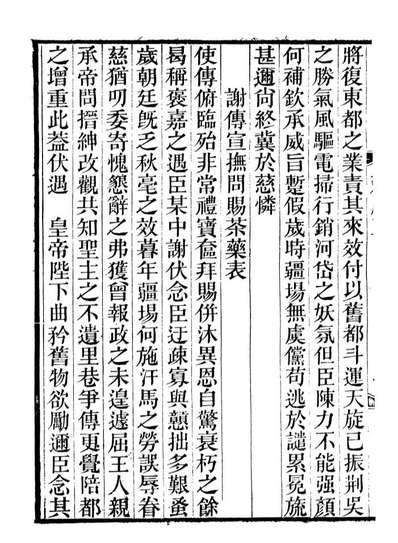 將復東都之業責其來效付以舊都斗運天旋已振荆吳
之勝氣風驅電掃行銷河岱之妖氛但臣陳力不能强顏
何補欽承威旨蹔假歲時疆埸無虞儻苟逃於譴累冕旒
甚邇尚終冀於慈憐
謝傳宣撫問賜茶藥表
使傳俯臨殆非常禮寶奩拜賜併沐異恩自驚衰朽之餘
曷稱褒嘉之遇臣某中謝伏念臣迂疎寡與戇拙多艱蚤
歲朝廷旣乏秋毫之效暮年疆埸何施汗馬之勞誤辱眷
慈猶叨委寄愧懇辭之弗獲曾報政之未遑遽屈王人親
承帝問搢紳改觀共知聖主之不遺里巷爭傳更覺陪都
之增重此葢伏遇　皇帝陛下曲矜舊物欲勵邇臣念其